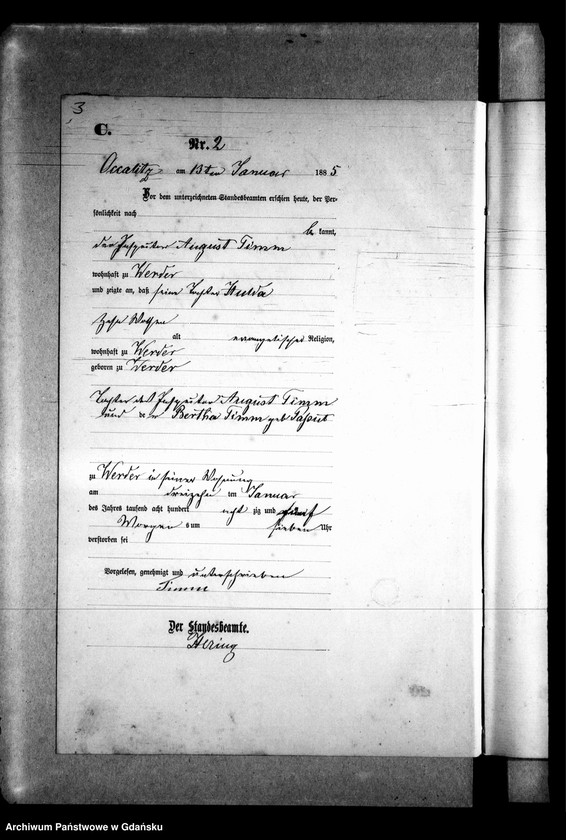 3
C.
Nr. 2
Occalitz am 13ten Januar 1885
Vor dem unterzeichneten Standesbeamten erschien heute, der Per-
sönlichkeit nach
be kannt,
der Inspektor August Timm
wohnhaft zu Werder
und zeigte an, daß seine Tochter Hulda
zehn Wochen
alt evangelischer Religion,
wohnhaft zu Werder
geboren zu Werder
Tochter des Inspektor August Timm
und der Bertha Timm geb
zu Werder in seiner Wohnung
am dreizehn ten Januar
des Jahres tausend acht hundert acht zig und fünf
Morgens um sieben Uhr
verstorben sei
Vorgelesen, genehmigt und unterschrieben
Timm
Der Standesbeamte.
Hering
Archiwum Państwowe w Gdańsku